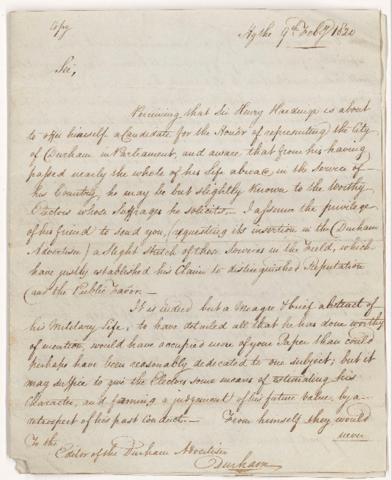 Copy
Hythe 9th Feby 1820
Sir,
Perceiving that Sir Henry Hardinge is about
to offer himself a Candidate for the Honor of representing the City
of Durham in Parliament, and aware, that from his having
passed nearly the whole of his Life abroad in the Service of
his Country, he may be but slightly known to the Worthy
Electors whose Suffrages he solicits. I assume the privilege
of his friend to send you, (requesting its insertion in the Durham
Advertiser) a Slight Sketch of those Services in the Field, which
have justly established his Claim to distinguished Reputation
and the Public Favor.
It is indeed but a Meagre & brief abstract of
his Military Life; to have detailed all that he has done worthy
of mention, would have occupied more of your Paper than could
perhaps have been reasonably dedicated to one subject; but it
may suffice to give the Electors some means of estimating his
Character, and forming a judgement of his future value, by a
retrospect of his past Conduct.— From himself they would
never
To the
Editor of the Durham Advertiser
Durham